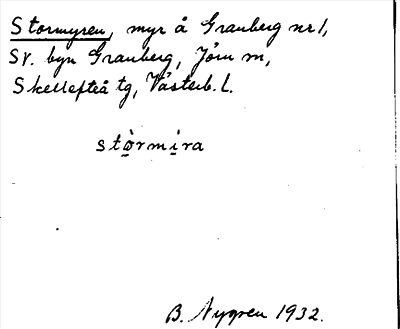 Stormyren, myr å Granberg nr 1,
Sv. byn Granberg, Jörn sn,
Skellefteå tg, Västerb. l.
stò̱rmi̱ra
B. Nygren 1932.